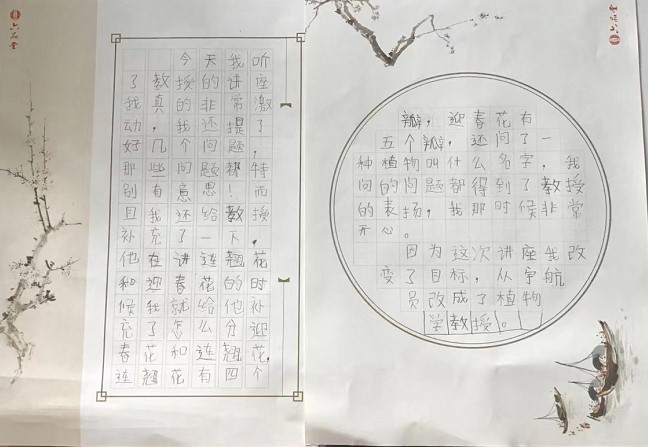 六品堂
今天我听
了教授的讲座
我真的非常激
动，我还提了
好几个问题，
那些问题都特
别有意思！而
且我还给教授
补充了一下，
他在讲连翘花
和迎春花的时
候我就给他补
充了怎么分迎
春花和连翘花，
连翘花有四个
瓣，迎春花有
五个瓣，还问了一
种植物叫什么名字，我
问的问题都得到了教授
的表扬，我那时候非常
开心。
因为这次讲座我改
变了目标，从宇航
员改成了植物
学教授。
六品堂